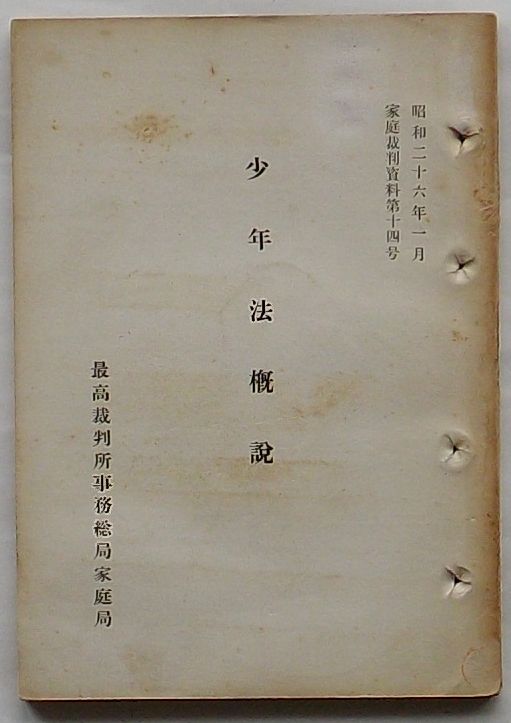 昭和二十六年一月
家庭裁判資料第十四号
少年法概説
最高裁判所事務総局家庭局